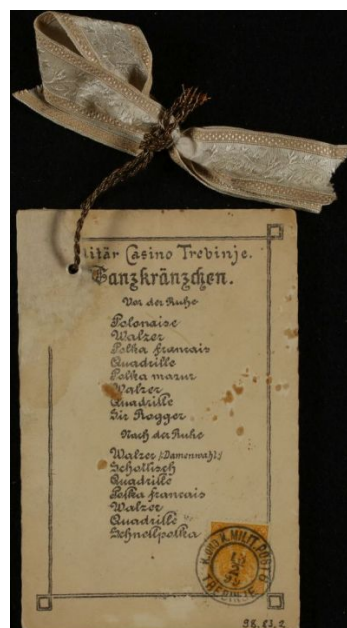 litär Casino Trebinje.
Tanzkränzchen.
Vor der Ruhe
Polonaise
Walzer
Polka francais
Quadrille
Polka mazur
Walzer
Quadrille
Sir Rogger
Nach der Ruhe
Walzer /:Damenwahl:/
Schottisch
Quadrille
Polka francais
Walzer
Quadrille
Schnellpolka
K. UND K. MILIT. POST
TREBINJE
98.83.2